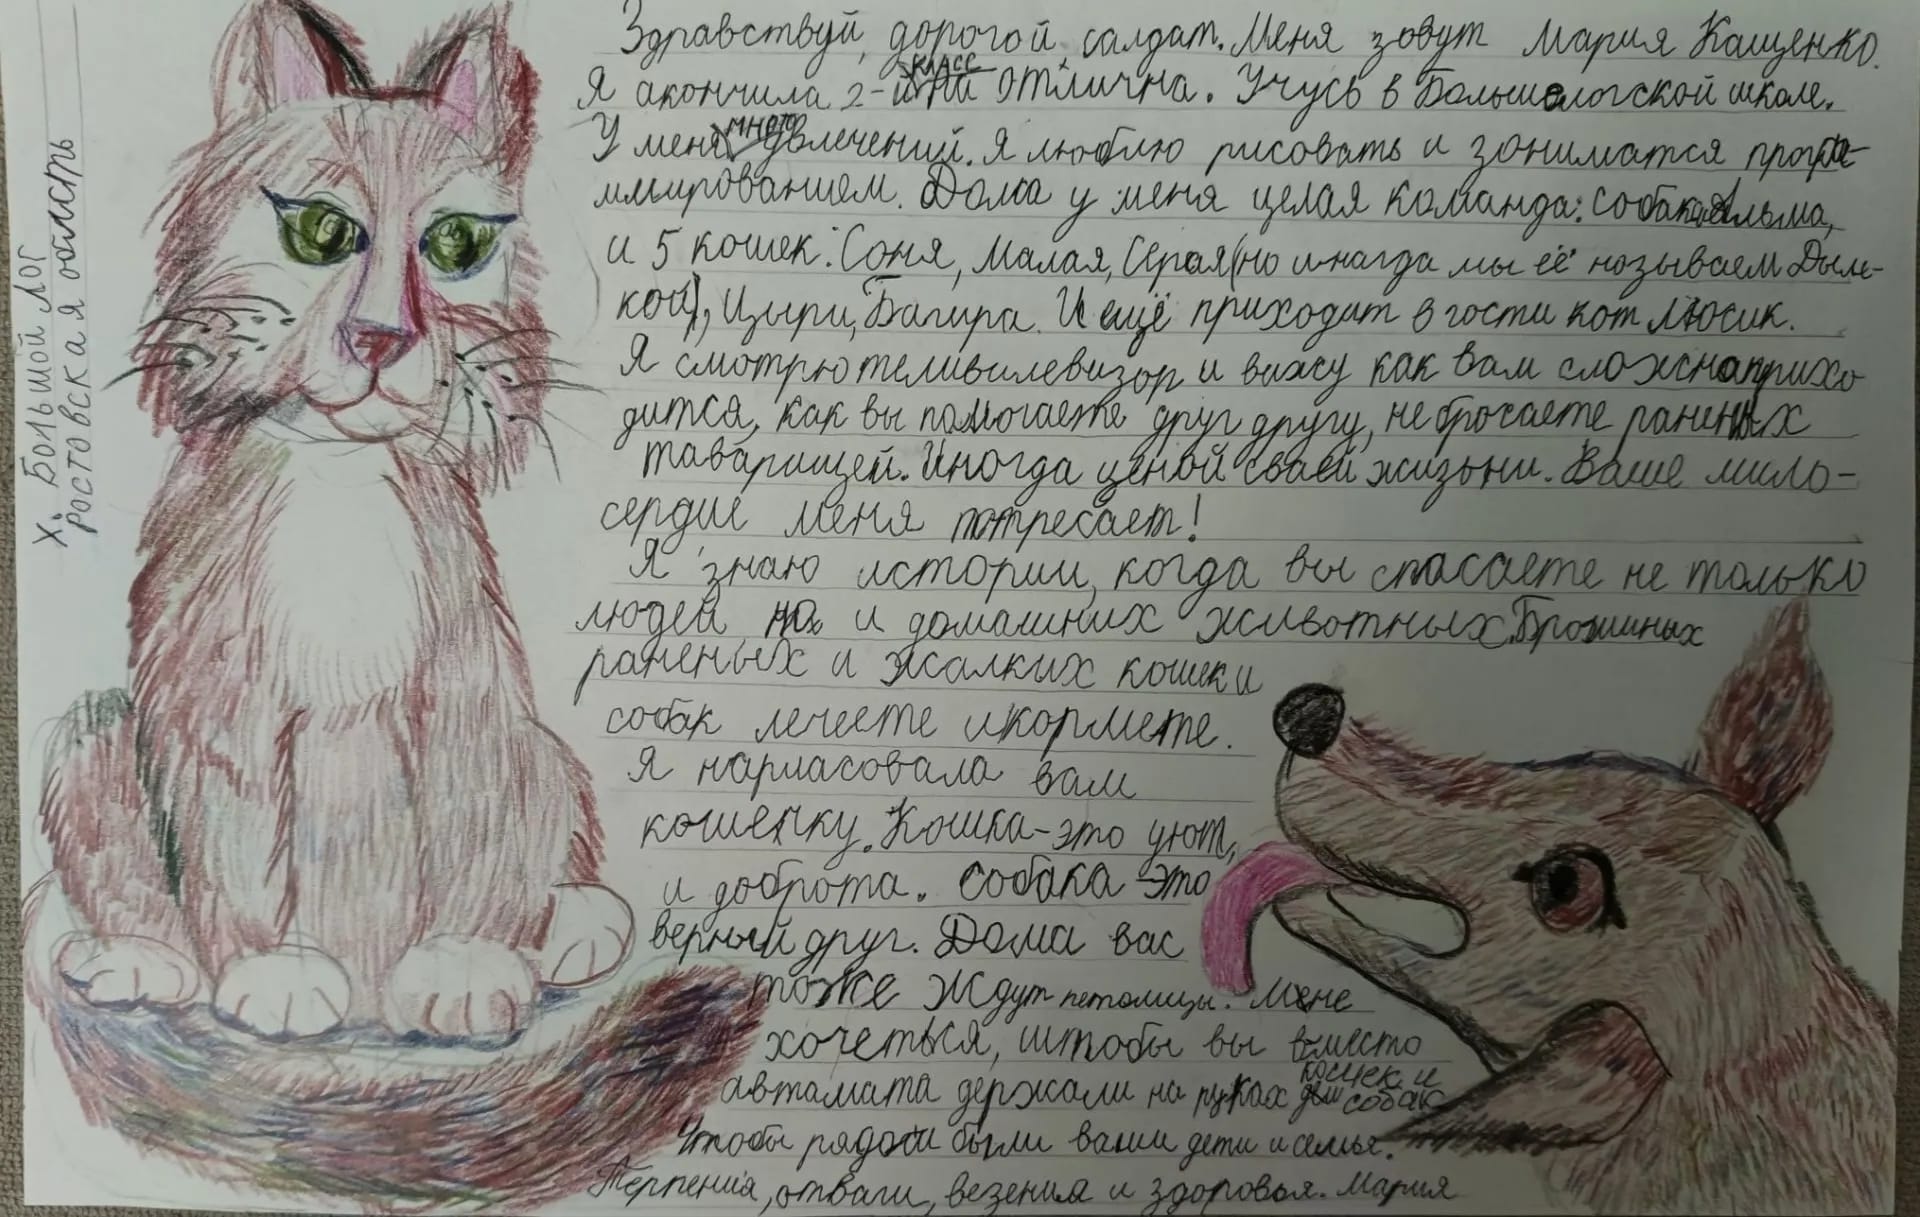 х. Большой Лог
Ростовская область
Здравствуй, дорогой салдат. Меня зовут Мария Кащенко.
Я акончила 2-й класс на отлична. Учусь в Большелогской школе.
У меня много увлечений. Я люблю рисовать и зониматся програ-
ммированием. Дома у меня целая команда: собака Альма,
и 5 кошек: Соня, Малая, Серая (но иногда мы её называем Дым-
кой), Цыри, Багира. И ещё приходит в гости кот Люсик.
Я смотрю теливилевизор и вижу как вам сложна прихо
дится, как вы помогаете друг другу, не брасаете раненых
таварищей. Иногда ценой сваей жизьни. Ваше мило-
сердие меня потресает!
Я знаю истории, когда вы спасаете не только
людей, но и домашних животных. Брошиных
раненых и жалких кошек и
собак лечеете и кормете.
Я нарисовала вам
кошечку. Кошка-это уют,
и доброта. Собака -это
верный друг. Дома вас
тоже ждут петомицы. Мене
хочеться, штобы вы вместо
автамата держали на руках кошек и собак
Чтобы рядом были ваши дети и семья.
Терпения, отваги, везения и здоровья. Мария